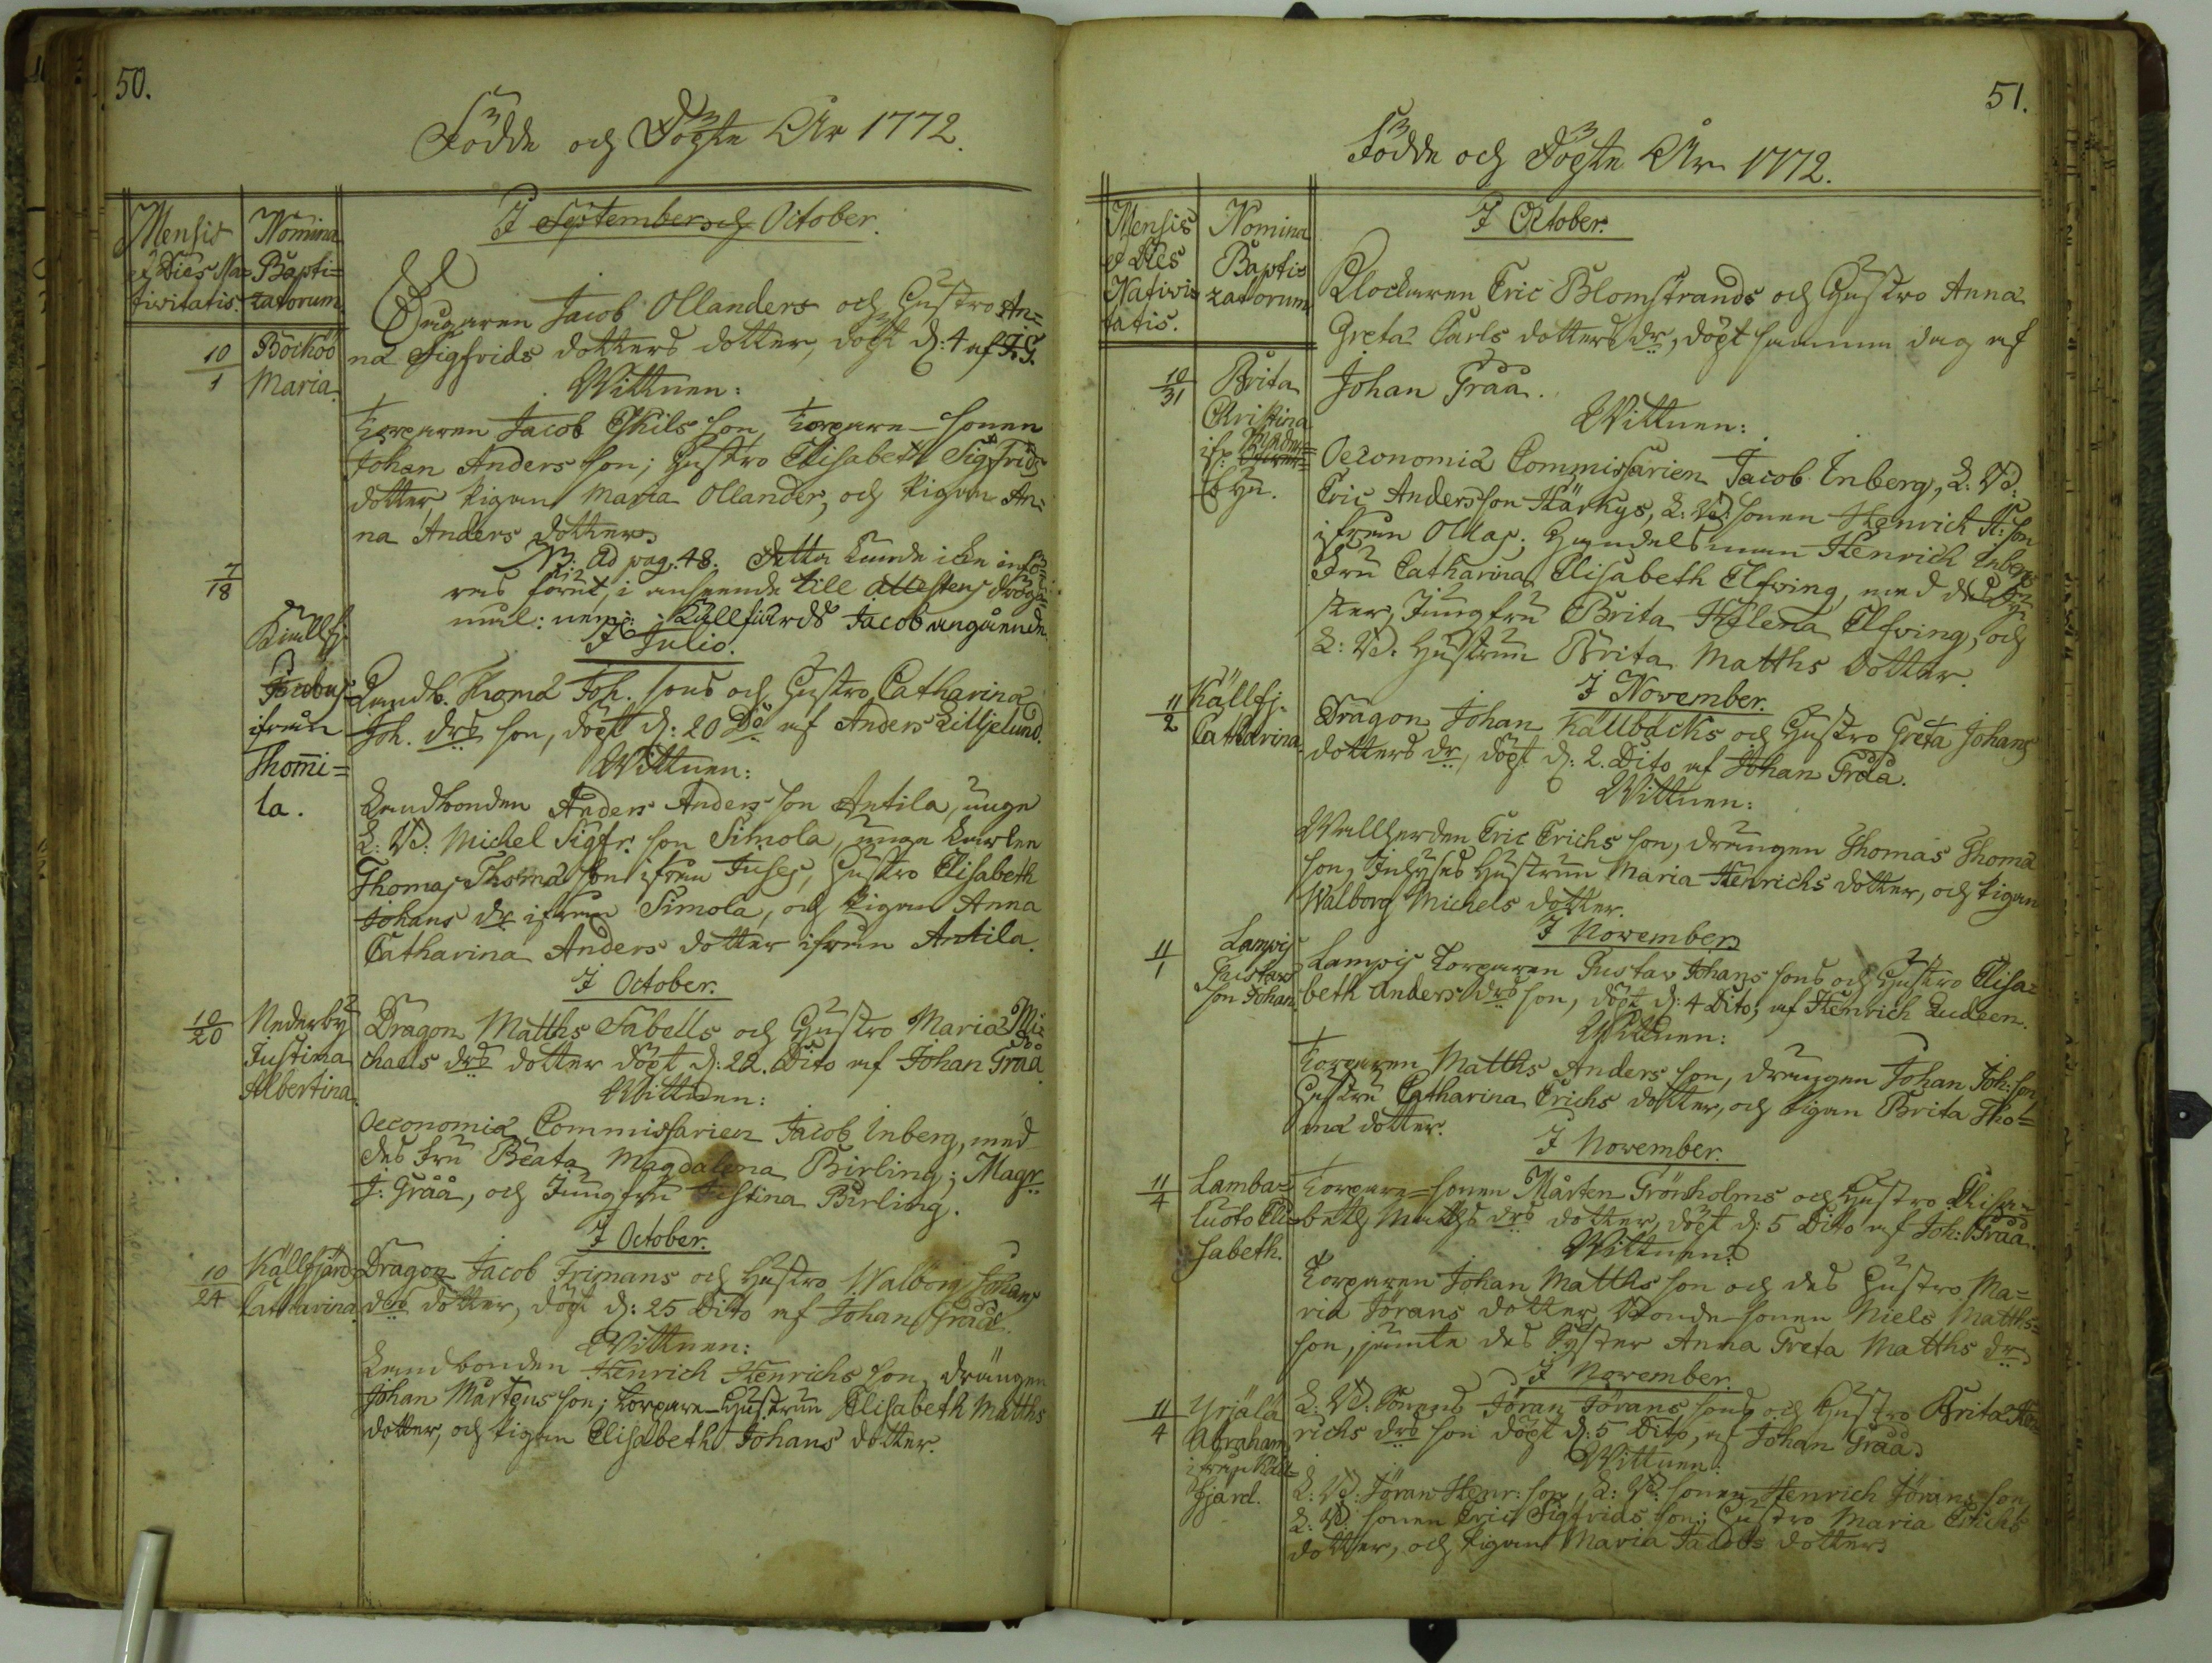 50.
Födde och Döpte År 1772.
Mensis et Dies Nativitatis.
Nomina Baptizatorum
I September och October.
10/1
Böckö Maria.
Jacob Ollanders och Hustro An=
na Sigfrids dotters dotter, döpt d: 4 af J. G.
Wittnen:
Torparen Jacob Eskils son, Torpare-sonen
Johan Anders son; Hustro Elisabeth Sigfrids
dotter, pigan Maria Ollander, och pigan An=
na Anders dotter.
NB. Ad pag. 48. Detta kunde icke infö=
ras förut, i anseende till Attestens drögs=
mål: nempe Källfiärds Jacob angående.
I Julio.
7/18
Kiällf.
Jacobus
ifrån
Thomi=
la.
Landb. Thoma Joh. sons och Hustro Catharina
Joh. drs son, döpt d: 20 Do af Anders Lilljelund.
Wittnen:
Landbonden Anders Anders son Antila, unge
L: B: Michel Sigfr. son Simola, unga karlen
Thomas Thoma son ifrån Juses, Hustro Elisabeth
Johans dr ifrån Simola, och pigan Anna
Catharina Anders dotter ifrån Antila.
I October.
10/20
Nederby
Justina
Albertina.
Dragon Matths Sabells och Hustro Maria Mi=
chaels drs dotter döpt d: 22. Dito af Johan Gråå
Wittnen:
Oeconomiæ Commissarien Jacob Inberg, med
des fru Beata Magdalena Birling; Magr.
J: Gråå, och Jungfru Justina Birling.
I October.
10/24
Källfjärd
Catharina.
Dragon Jacob Frimans och Hustro Walborg Johans
drs dotter, döpt d: 25 Dito af Johan Gråå.
Wittnen:
Landbonden Henrich Henrichs son, drängen
Johan Mårtens son; Torpare-Hustrun Elisabeth Matths
dotter, och pigan Elisabeth Johans dotter.
51.
Födde och Döpte År 1772.
Mensis et Dies Nativitatis.
Nomina Baptizatorum
I October.
10/31
Brita
Christina
ifr. Neder=
by.
Klockaren Eric Blomstrands och Hustro Anna
Greta Carls dotters dr, döpt samma dag af
Johan Gråå.
Wittnen:
Oeconomiæ Commissarien Jacob Inberg, L: B:
Eric Anders son Härkys, L: B: sonen Henrich H: son
ifrån Ollas; Handelsman Henrich Inbergs
Fru Catharina Elisabeth Elfving, med des Sy=
ster, Jungfru Brita Helena Elfving, och
L: B: Hustrun Brita Matths dotter.
I November.
11/2
Källfj.
Catharina.
Dragon Johan Källbäcks och Hustro Greta Johans
dotters dr, döpt d: 2. Dito af Johan Gråå.
Wittnen:
Wallherden Eric Erichs son, drängen Thomas Thoma
son, Inhyses Hustrun Maria Henrichs dotter, och pigan
Walborg Michels dotter.
I November
11/1
Lampis
Gustavs
son Johan.
Lampis Torparen Gustav Johans sons och Hustro Elisa=
beth Anders drs son, döpt d: 4 Dito, af Henrich Ludeen.
Wittnen:
Torparen Matths Anders son, drängen Johan Joh: son,
Hustru Catharina Erichs dotter, och pigan Brita Tho=
ma dotter.
I November.
11/4
Lamba=
luoto Eli=
sabeth.
Torpare-sonen Mårten Grönholms och Hustro Elisa=
beth Matths drs dotter, döpt d: 5 Dito af Joh: Gråå.
Wittnen:
Torparen Johan Matths son och des Hustro Ma=
ria Jörans dotter, Bonde-sonen Niels Matths=
son, jämte des Syster Anna Greta Matths dr
I November.
11/4
Yrjälä
Abraham,
ifrån Käll=
fjärd.
L: B: Sonens Jöran Jörans sons och Hustro Brita Hen=
richs drs son döpt d: 5 Dito, af Johan Gråå.
Wittnen:
L: B: Jöran Henr: son, L: B: sonen Henrich Jörans son
L: B: sonen Eric Sigfrids son; Hustro Maria Erichs
dotter, och pigan Maria Jacobs dotter.